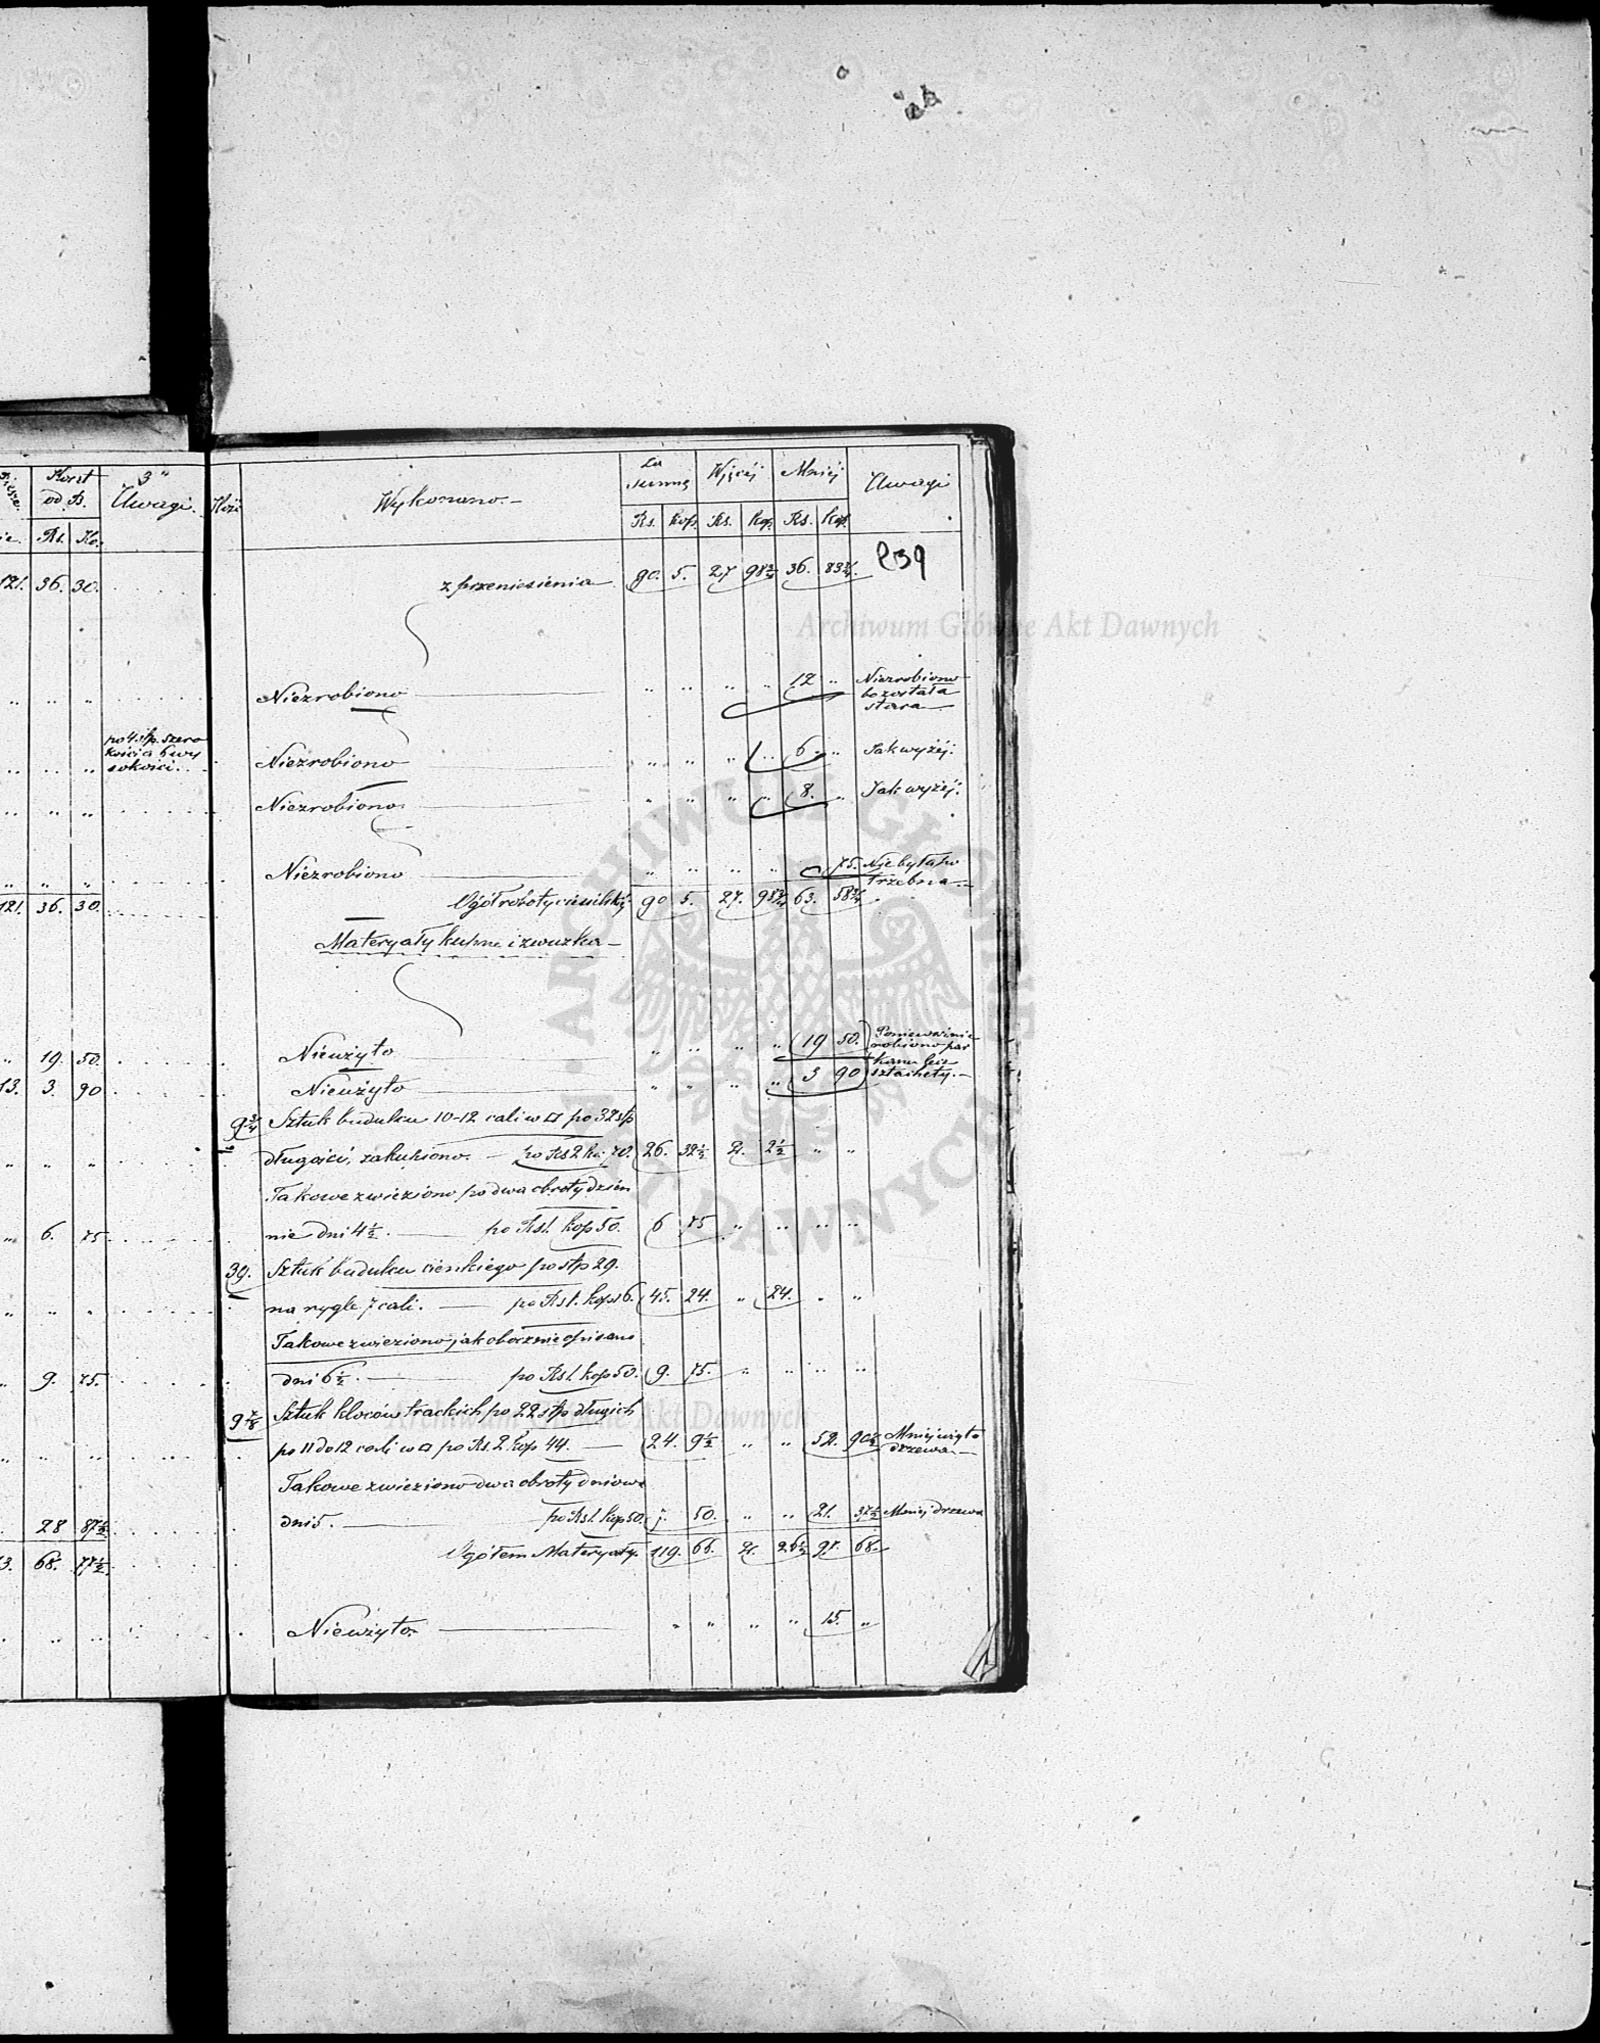 Koszt
od Rs.
3"
Uwagi.
Rs. Ko.
121. 36. 30.
po 4 stp. szero
kości a 6 wy
sokości.
121. 36. 30.
19. 50.
13. 3. 90
6. 75.
9. 75.
28 87½
3. 68. 77½
Ilość
Wykonano.
Za summę
Więcéj
Mniéj
Uwagi
Rs. kop. Rs. kop. Rs. kop.
239
z przeniesienia 90. 5. 27 98¾ 36. 83¾
Niezrobiono 12 " Niezrobiono
bo została
stara
Niezrobiono 6 " Jak wyżéj.
Niezrobiono 8. " Jak wyżéj.
Niezrobiono 75. Nie była po
trzebna.
Ogół roboty ciesielskiéj 90 5. 27. 98¾ 63. 58¾
Materyały kupne i zwózka
Nieużyto 19 50. Ponieważ nie
robiono par
kanu lecz
sztachety.
Nieużyto 3 90
9¾ Sztuk budulcu 10-12 cali w □ po 32 stp
długości, zakupiono. po Rs 2 ko. 70. 26. 32½ 2. 2½ " "
Takowe zwieziono po dwa obroty dzien
nie dni 4½. po Rs 1. kop 50. 6 75 " " " "
39. Sztuk budulcu cienkiego po stp 29.
na rygle 7 cali. po Rs 1. kop 16. 45. 24. " 24. " "
Takowe zwieziono jak obocznie opisano
dni 6½. po Rs 1. kop 50. 9. 75. " " " "
9⅞ Sztuk kloców trackich po 22 stp długich
po 11 do 12 cali w □ po Rs. 2 kop 44. 24. 9½ " " 52. 90½ Mniéj wzięto
drzewa
Takowe zwieziono dwa obroty dniowe
dni 5. po Rs 1. kop 50. 7. 50. " " 21. 37½ Mniéj drzewa
Ogółem Materyały. 119. 66. 2. 26½ 97. 68.
Nieużyto. " " " " 15. "
Archiwum Główne Akt Dawnych
ARCHIWUM GŁÓWNE AKT DAWNYCH
Archiwum Główne Akt Dawnych